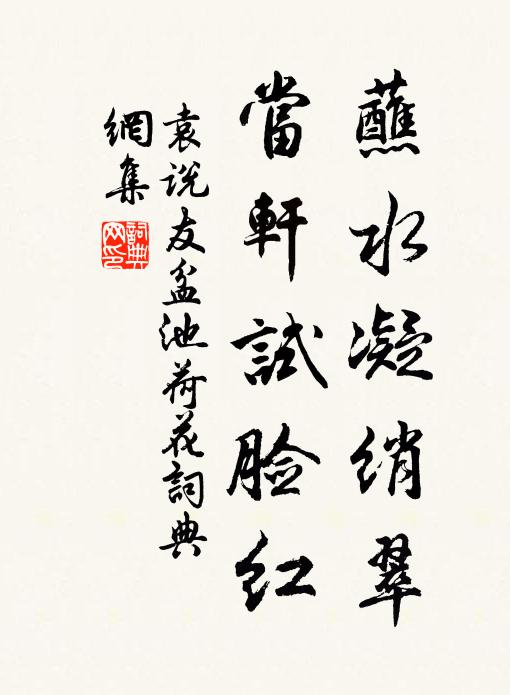 蘸水凝绡翠
當軒試臉红
袁说友盆池荷花詞典
網集
詞典网印